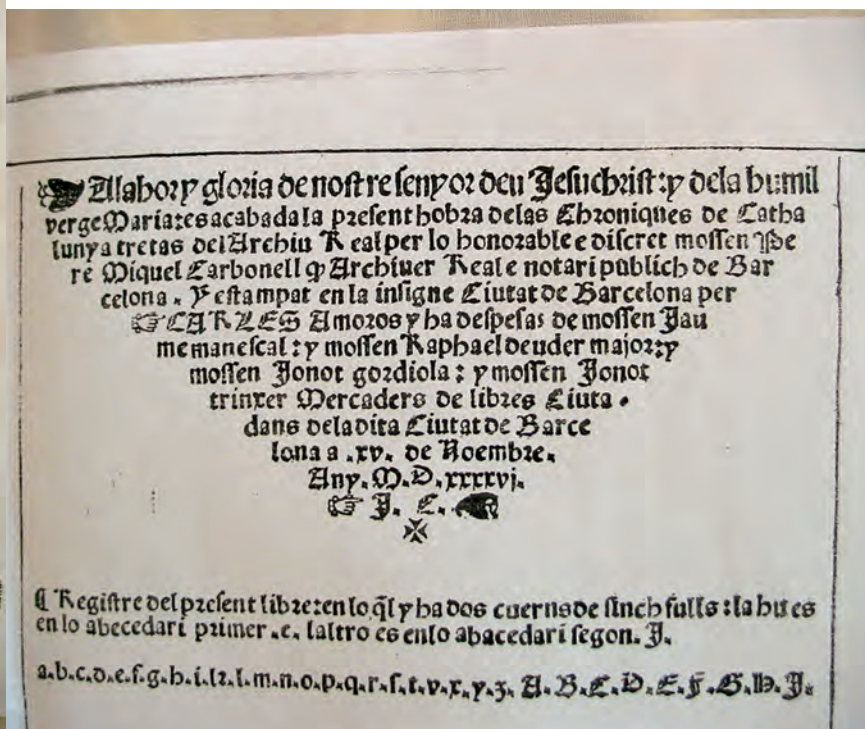 A labor y gloria de nostre senyor deu Jesuchrist: y dela humil
verge Maria: es acabada la present hobra delas Chroniques de Catha
lunya tretas del Archiu Real per lo honorable e discret mossen Pe
re Miquel Carbonell q̃ Archiuer Real e notari publich de Bar
celona. Y estampat en la insigne Ciutat de Barcelona per
☞ CARLES Amoros y ha despesas de mossen Jau
me manescal: y mossen Raphael deuder major: y
mossen Jonot gordiola: y mossen Jonot
trinxer Mercaders de libres Ciuta.
dans deladita Ciutat de Barce
lona a .xv. de Noembre.
Any. M. D. xxxxvj.
☞ J. C.
✠
¶ Registre del present libre: en lo q̃l y ha dos cuerns de sinch fulls: la hu es
en lo abecedari primer .e. laltro es enlo abacedari segon. J.
a.b.c.d.e.f.g.h.i.k.l.m.n.o.p.q.r.s.t.v.x.y.z. A.B.C.D.E.F.G.H.J.